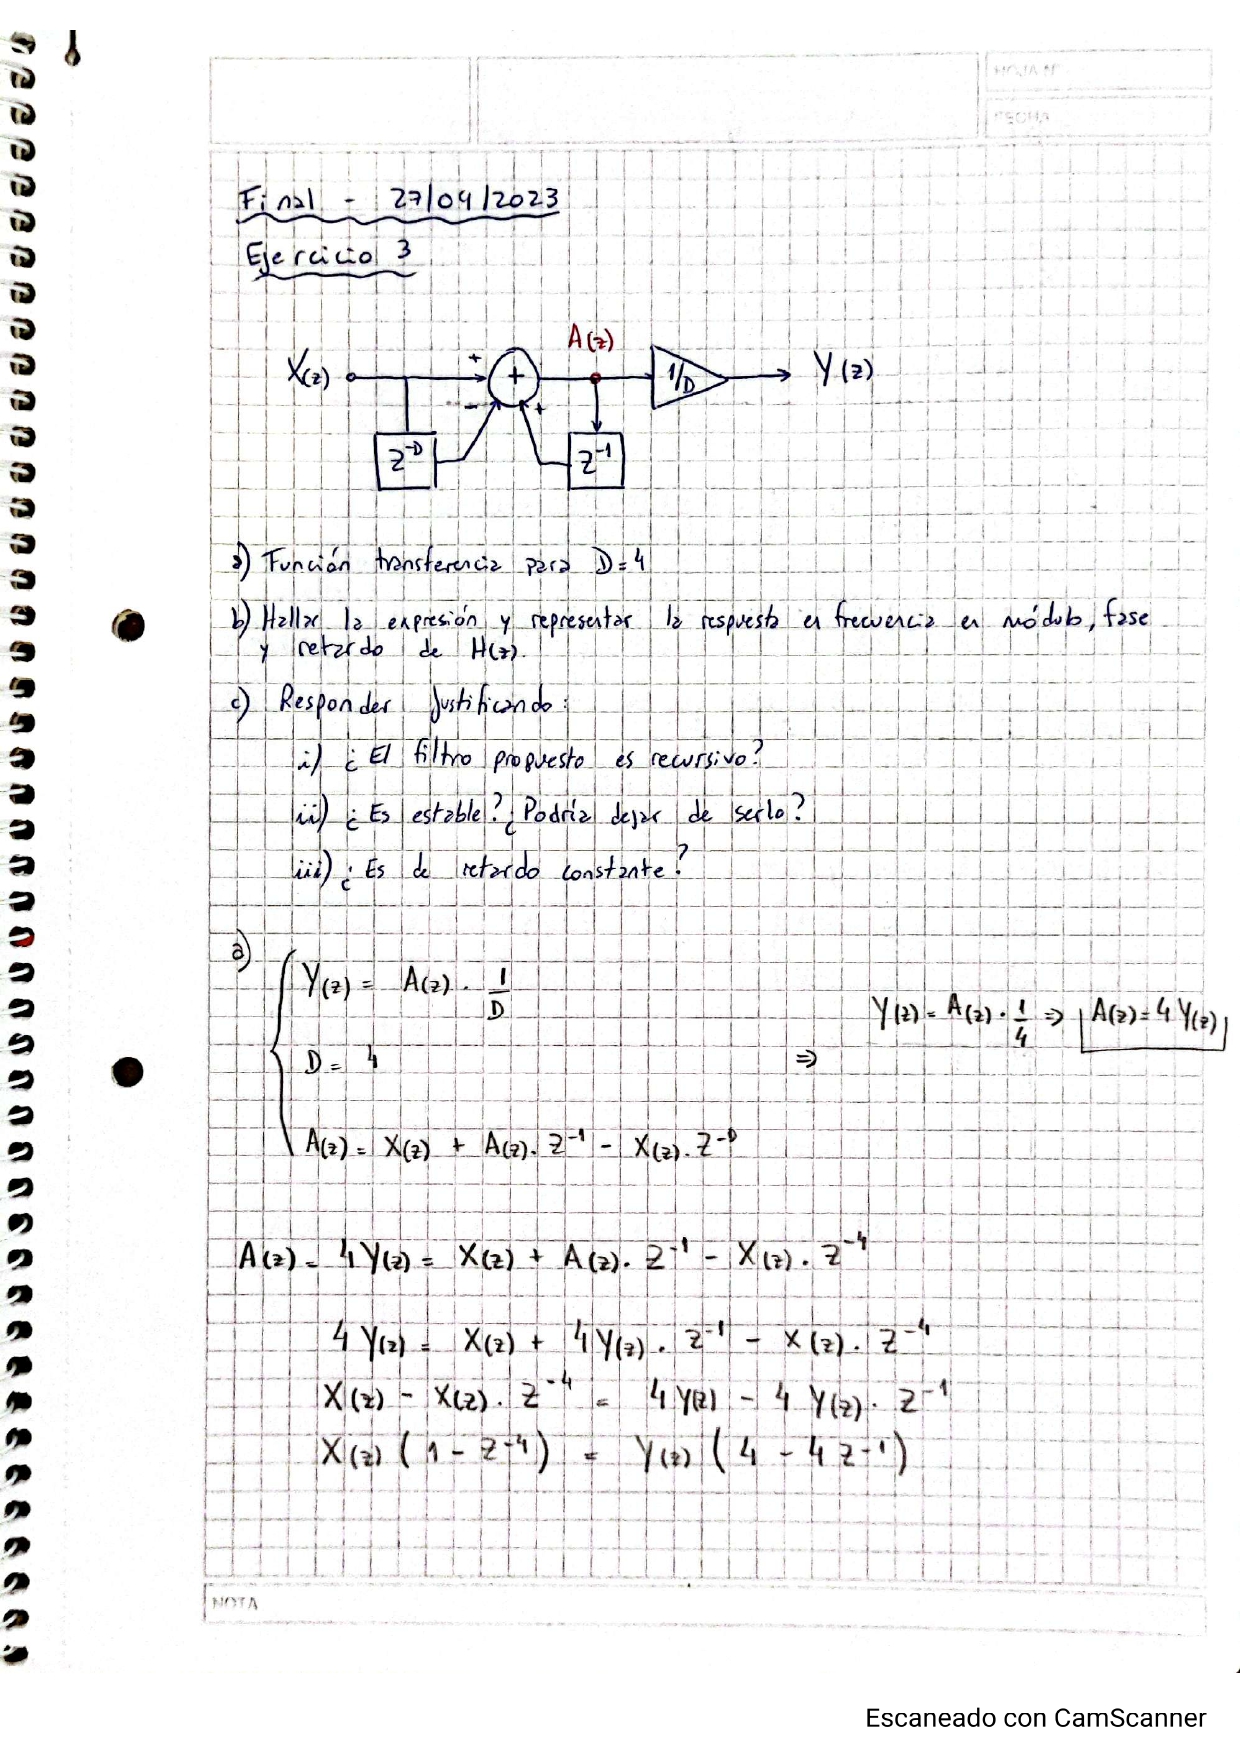 HOJA Nº
FECHA
Final - 27/04/2023
Ejercicio 3
A(z)
X(z) + + 1/D Y(z)
- +
z^-D z^-1
a) Función transferencia para D=4
b) Hallar la expresión y representar la respuesta en frecuencia en módulo, fase
y retardo de H(z).
c) Responder Justificando:
i) ¿El filtro propuesto es recursivo?
ii) ¿Es estable? ¿Podría dejar de serlo?
iii) ¿Es de retardo constante?
a)
Y(z) = A(z) . 1/D
D = 4 ⇒ Y(z) = A(z) . 1/4 ⇒ A(z) = 4 Y(z)
A(z) = X(z) + A(z) . z^-1 - X(z) . z^-D
A(z) = 4 Y(z) = X(z) + A(z) . z^-1 - X(z) . z^-4
4 Y(z) = X(z) + 4 Y(z) . z^-1 - X(z) . z^-4
X(z) - X(z) . z^-4 = 4 Y(z) - 4 Y(z) . z^-1
X(z) ( 1 - z^-4 ) = Y(z) ( 4 - 4 z^-1 )
NOTA
Escaneado con CamScanner